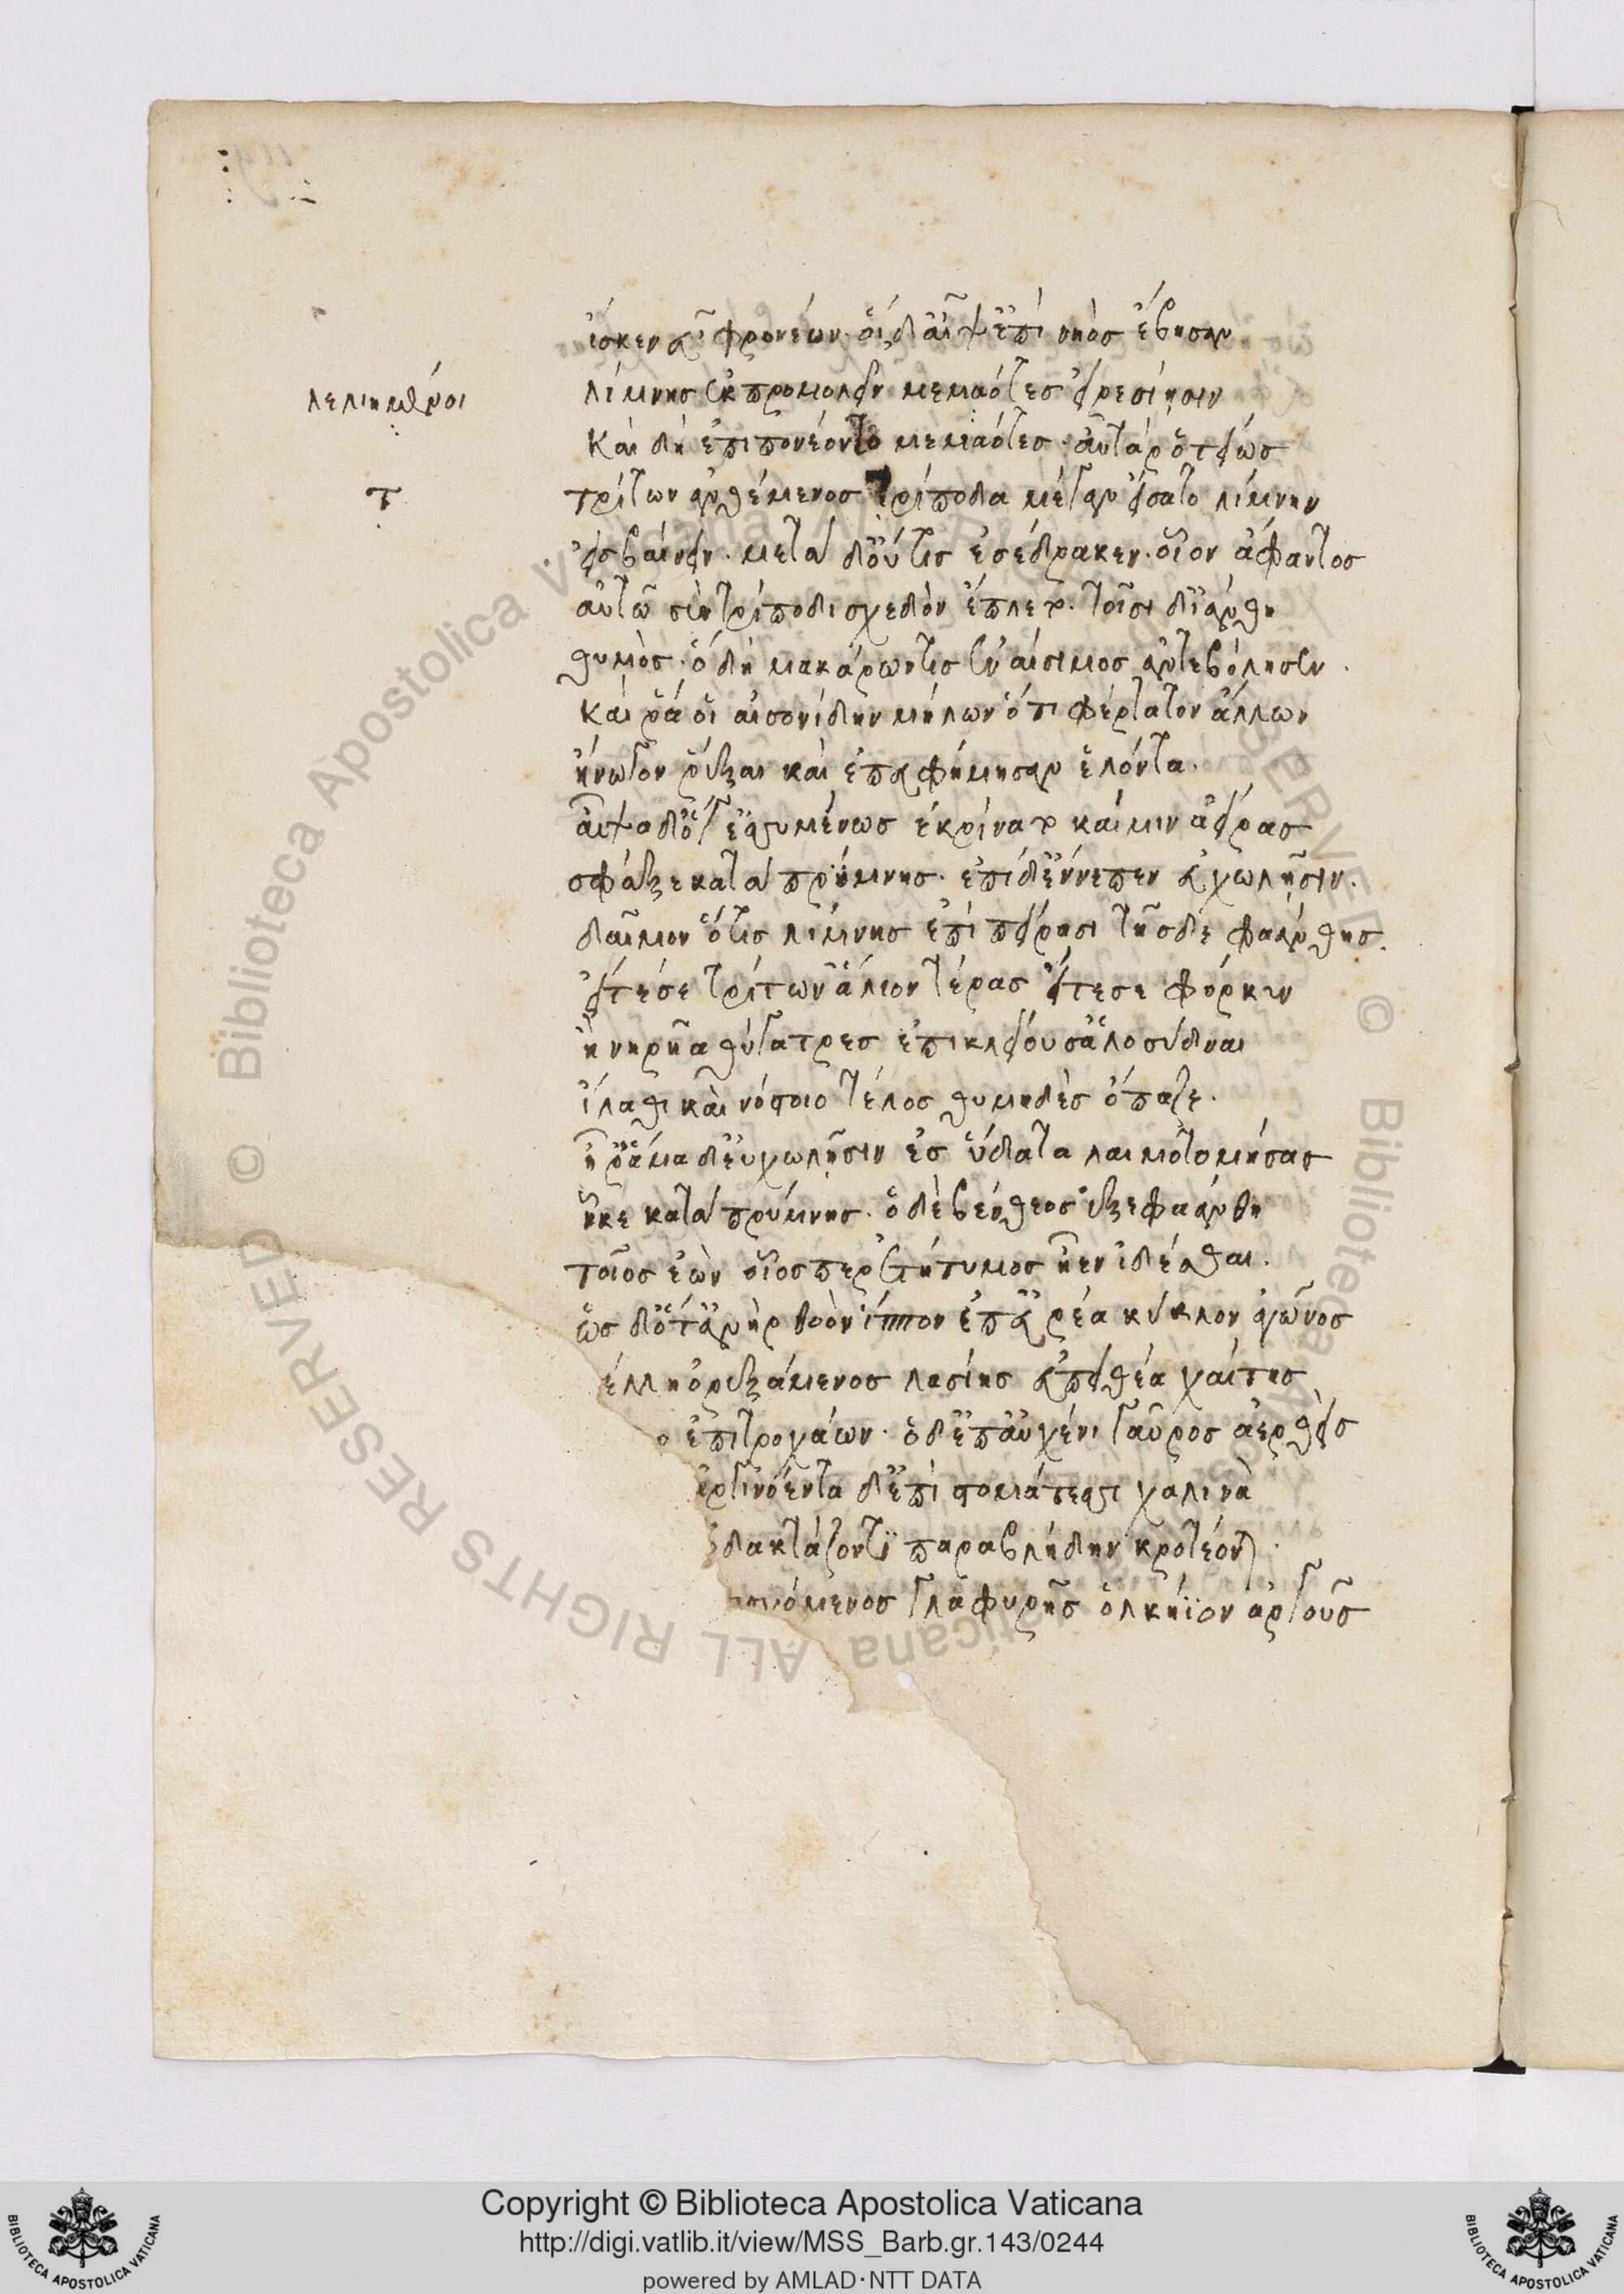 ἴσκεν ἐϋφρονέων· οἱ δ' αἶψ' ἐπὶ νηὸς ἔβησαν
λίμνης ἐκπρομολεῖν μεμαότες εἰρεσίῃσιν
λελιημένοι
καὶ δὴ ἐπιπονέοντο μεμαότες· αὐτὰρ ὅτ' εἴως
τρίτων ἀνθέμενος τρίποδα μέγαν εἴσατο λίμνην
τ
εἰσβαίνειν· μετὰ δ' οὔτις ἐσέδρακεν· οἷον ἄφαντος
αὐτῶ σὺν τρίποδι σχεδὸν ἔπλετο· τοῖσι δ' ἰάνθη
θυμὸς· ὃ δὴ μακάρων τις ἐναίσιμος ἀντεβόλησεν·
καί ῥά οἱ αἰσονίδην μήλων ὅτι φέρτατον ἄλλων
ἤνωγον ῥέξαι καὶ ἐπευφήμησαν ἑλόντα·
αἶψα δ' ὅγ' ἐσσυμένως ἐκρίνατο καί μιν ἀείρας
σφάξε κατὰ πρύμνης· ἐπὶ δ' ἔννεπεν εὐχωλῇσιν·
δαῖμον ὅτις λίμνης ἐπὶ πείρασι τῆσδε φαάνθης·
εἴτε σε τρίτων' ἅλιον τέρας εἴτε σε φόρκιν
ἢ νηρῆα θύγατρες ἐπικλείουσ' ἁλοσύδναι
ἵλαθι καὶ νόστοιο τέλος θυμηδὲς ὄπαζε·
ἦ ῥ' ἅμα δ' εὐχωλῇσιν ἐς ὕδατα λαιμοτομήσας
ἧκε κατὰ πρύμνης· ὁ δὲ βένθεος ἐξεφαάνθη
τοῖος ἐὼν οἷός περ ἐτήτυμος ἦεν ἰδέσθαι·
ὡς δ' ὅτ' ἀνὴρ θοὸν ἵππον ἐπ' εὐρέα κύκλον ἀγῶνος
έλλῃ ὀρεξάμενος λασίης εὐπειθέα χαίτης
ο ἐπιτροχάων· ὁ δ' ἐπ' αὐχένι γαῦρος ἀερθεὶς
ἀργινόεντα δ' ἐπὶ στομάτεσσι χαλινὰ
δακτάζοντι παραβλήδην κροτέονται·
όμενος γλαφυρῆς ὁλκήϊον ἀργοῦς
Copyright © Biblioteca Apostolica Vaticana
http://digi.vatlib.it/view/MSS_Barb.gr.143/0244
powered by AMLAD·NTT DATA
BIBLIOTECA APOSTOLICA VATICANA
BIBLIOTECA APOSTOLICA VATICANA
© Biblioteca Apostolica Vaticana ALL RIGHTS RESERVED